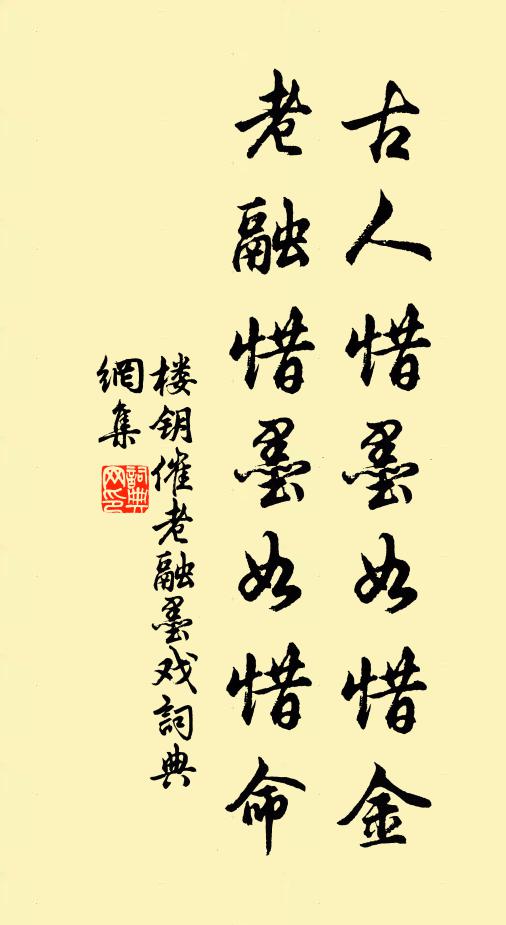 古人惜墨如惜金
老融惜墨如惜命
楼钥催老融墨戏詞典
網集
詞典網印